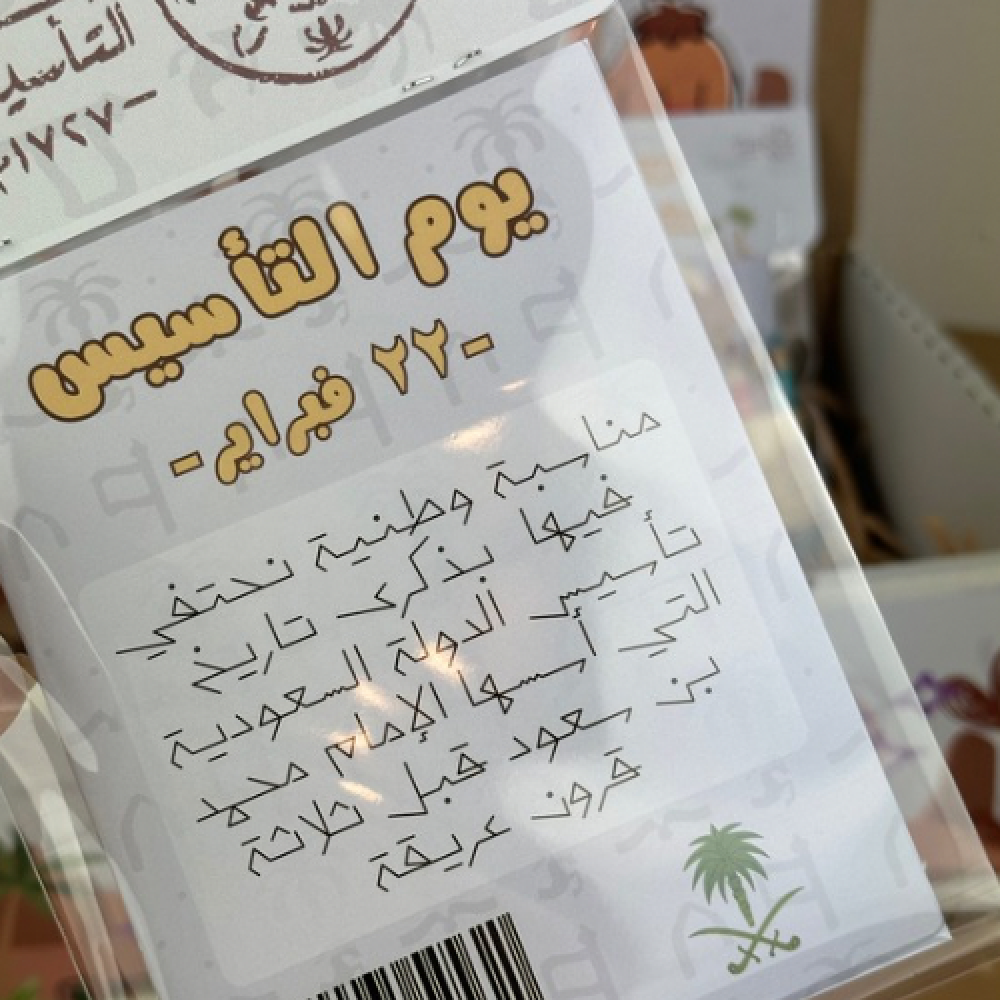 التأسيس
-١٧٢٧
يوم التأسيس
-٢٢ فبراير-
مناسبة وطنية نحتفي
فيها بذكرى تاريخ
تأسيس الدولة السعودية
التي أسسها الإمام محمد
بن سعود قبل ثلاثة
قرون عريقة